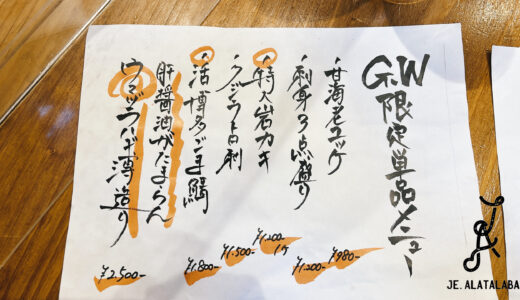 G.W限定単品メニュー
・甘海老ユッケ ¥980-
・刺身3点盛り ¥1,200-
・特大岩カキ ¥1,200- 1ケ
・クジラトロ刺 ¥1,500-
・活 博多ごま鯖 ¥1,800-
肝醤油がたまらん
ウマヅラハギ薄造り ¥2,500-
JE. ALATALABA